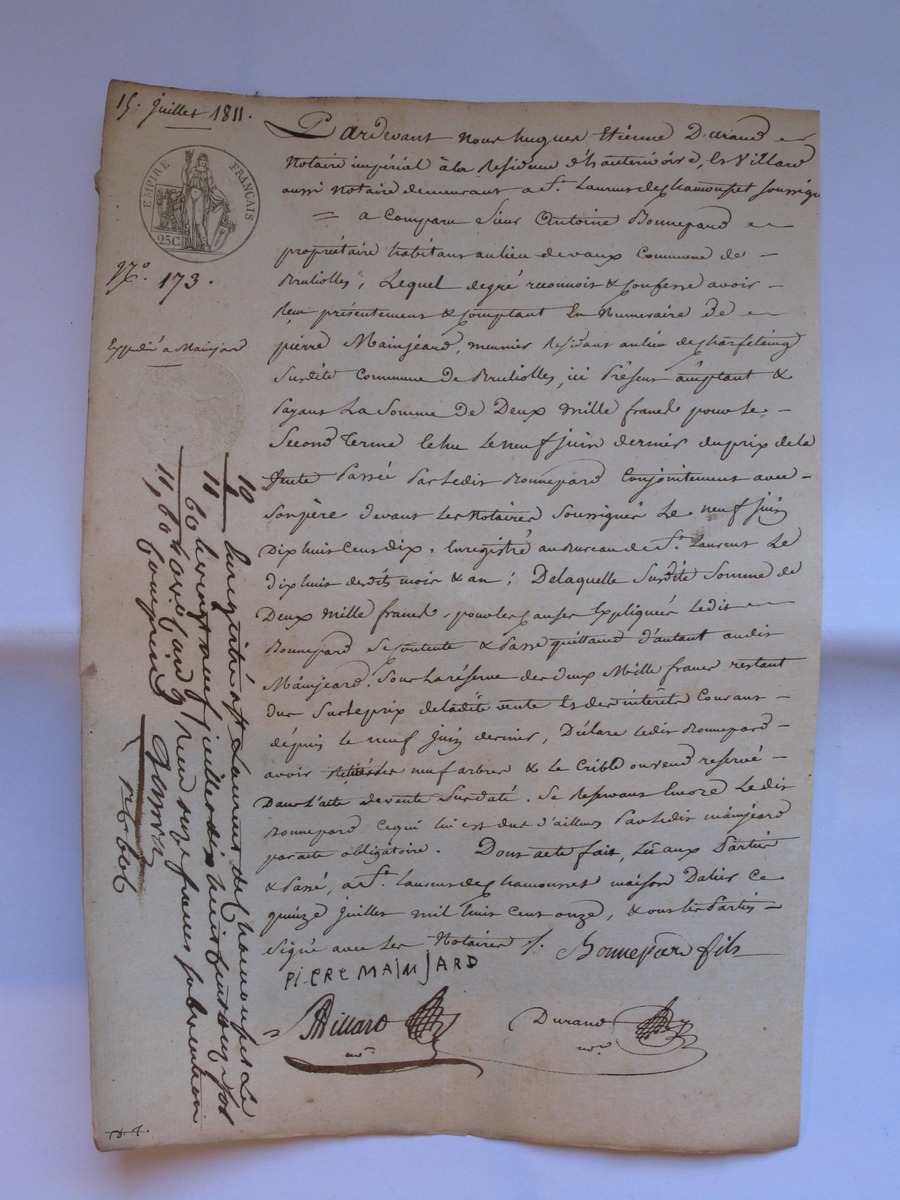 15. Juillet 1811.
EMPIRE FRANÇAIS
25 C.
N.º 173.
Expédié a Mainjard
Pardevant nous hugues Etienne Durand
Notaire impérial à la Residence d'hauterivoire, et Villard
aussi Notaire demeurant a St. Laurent de chamousset soussignés
= a Comparu Sieur Antoine Bonnepard
propriétaire habitant au lieu de vaux Commune de
Brulliolles, Lequel de gré reconnoit & Confesse avoir
Reçu présentement & Comptant En Numeraire de
pierre Mainjeard, meunier Residant au lieu de
Surdite Commune de Brulliolles, ici Présent acceptant &
Payant La Somme de Deux mille francs pour Le
Second Terme Echu Le neuf juin dernier du prix de la
Vente Passée Par Ledit Bonnepard Conjointement avec
Son père devant Les Notaires Soussignés Le neuf juin
Dix huit Cent dix. Enregistré au Bureau de St. Laurent Le
dix huit desdits mois & an; De laquelle Surdite Somme de
Deux Mille francs pour les Causes Expliquées Ledit
Bonnepard Se Contente & Passe quittance d'autant audit
Mainjeard, Sous La réserve des deux Mille francs restant
dus Sur Le prix de Ladite vente Et des intérêts Courant
depuis Le neuf juin dernier, Déclare Ledit Bonnepard
avoir neuf arbres & Le Crible réservé
Dans L'acte de vente Surdaté. Se Reservant Encore Ledit
Bonnepard Ce qui lui est dut d'ailleurs Par Ledit mainjeard
par acte obligatoire. Dont acte fait, Lû aux Parties
& Passé, a St. Laurent de Chamousset maison Ce
quinze juillet mil huit cent onze, & ont Les Parties
Signé avec Les Notaires ./. Bonnepard fils
PIERE MAINJARD
Villard Durand
nre. nre.
10
1
11
Enregistré a St. Laurent de chamousset Le
vingt neuf juillet dix huit cent onze fol
60 Reçu onze francs subvention
11, 60
Comprise